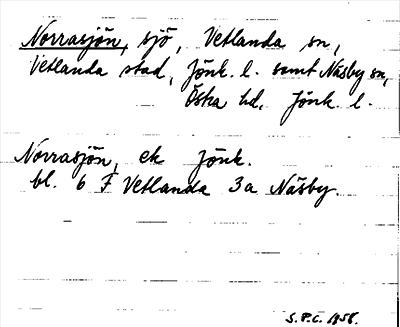 Norrasjön, sjö, Vetlanda sn,
Vetlanda stad, Jönk. l. samt Näsby sn,
Östra hd, Jönk. l.
Norrasjön, ek Jönk.
bl. 6 F Vetlanda 3a Näsby.
S.P.C. 1958.